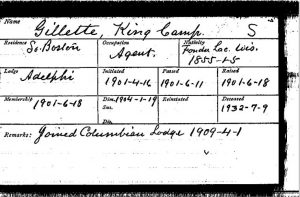 Name
Gillette, King Camp. S
Residence Occupation Nativity
So. Boston Agent. Fondu Lac. Wis.
1855-1-5
Lodge Initiated Passed Raised
Adelphi 1901-4-16 1901-6-11 1901-6-18
Membership Dim. Reinstated Deceased
1901-6-18 1904-1-19 1932-7-9
Sus.
Dis.
Remarks: Joined Columbian Lodge 1909-4-1